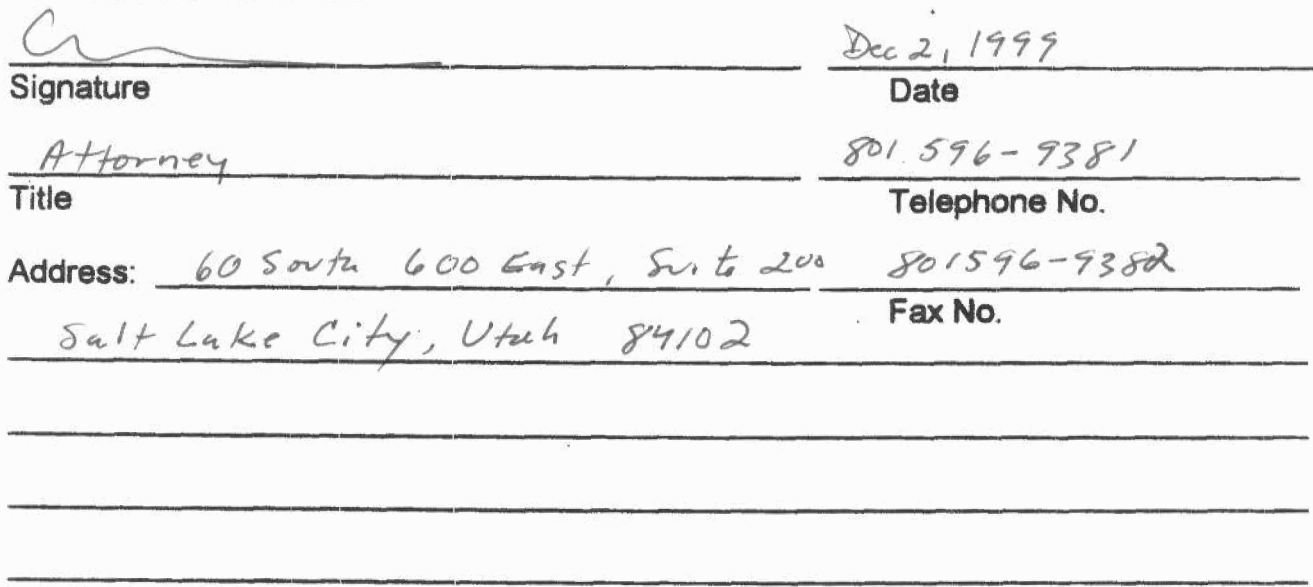 Dec 2, 1999
Signature Date
Attorney 801 596-9381
Title Telephone No.
Address: 60 South 600 East, Suite 200 801596-9382
Fax No.
Salt Lake City, Utah 84102